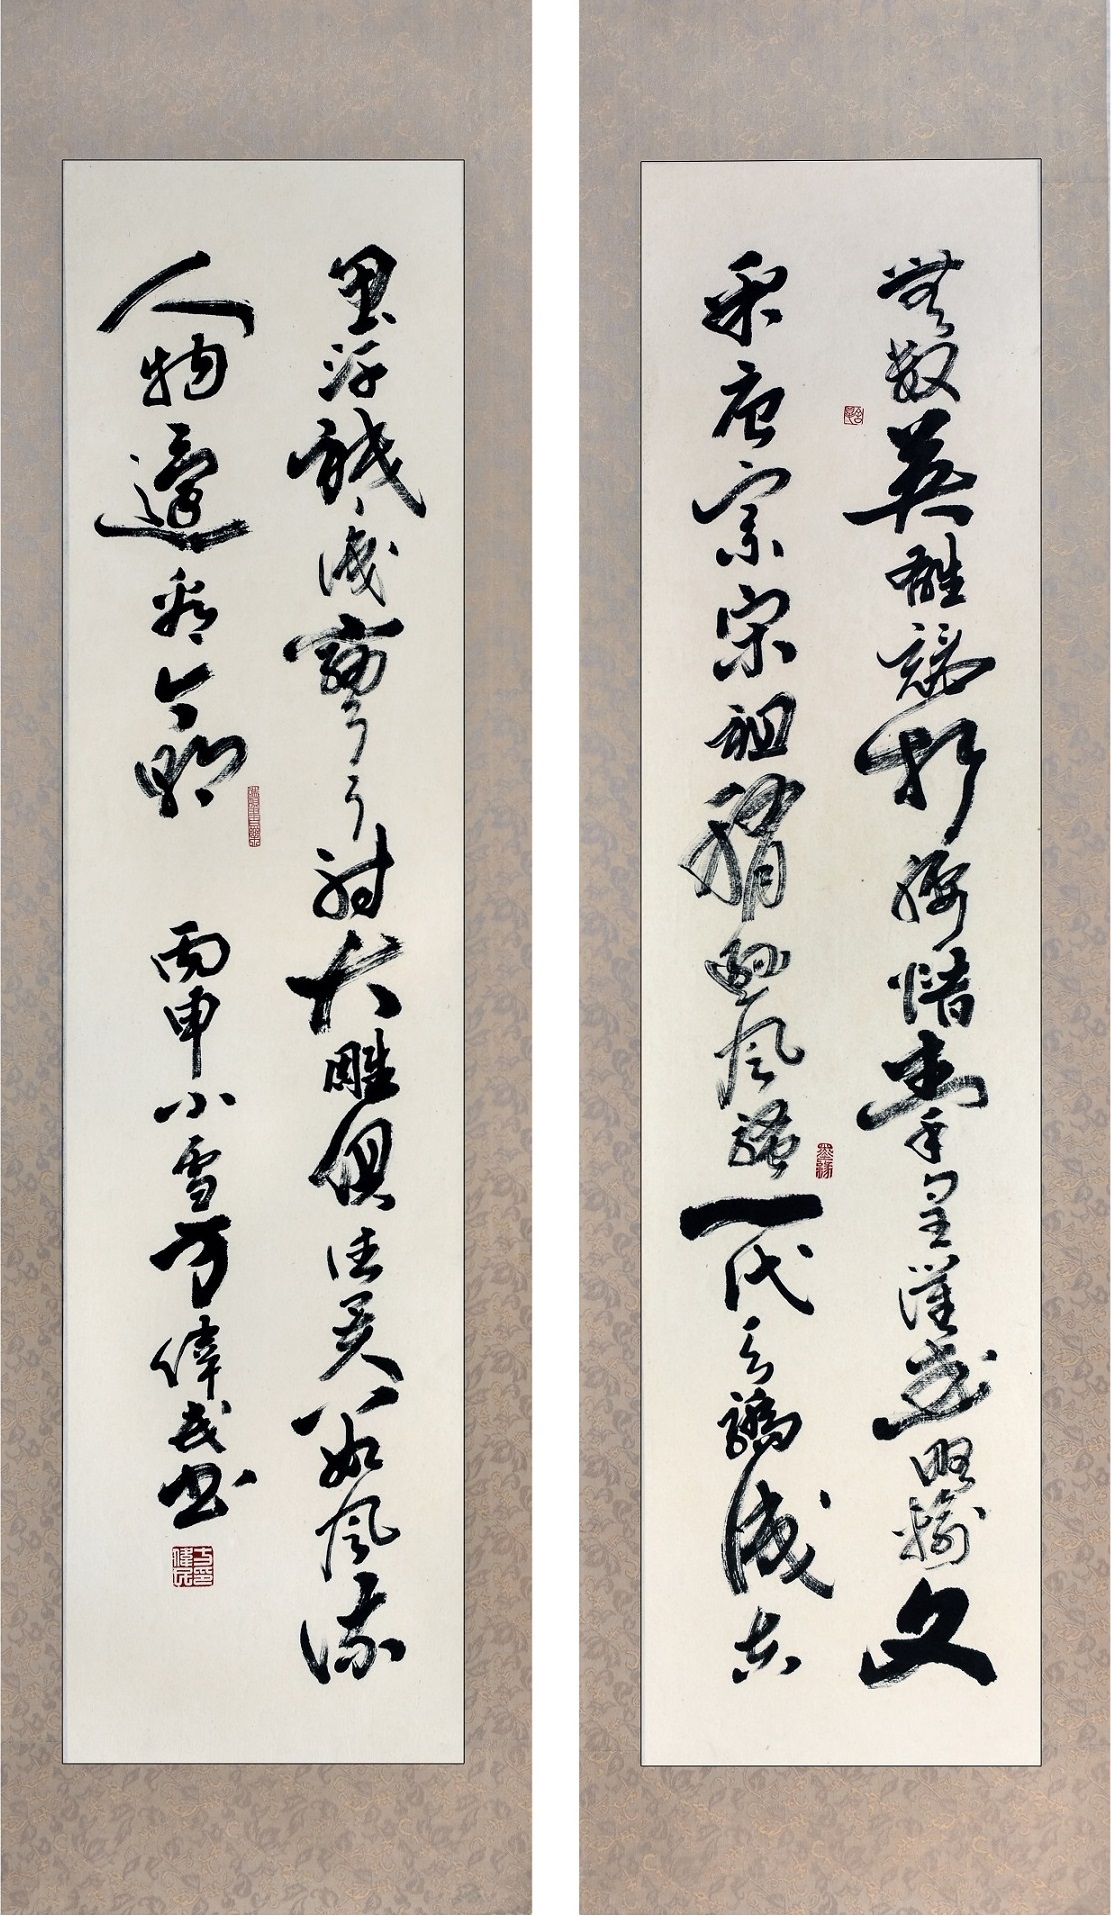 無數英雄競折腰惜秦皇漢武略輸文
采唐宗宋祖稍遜風騷一代天驕成吉
思汗祇識彎弓射大雕俱往矣數風流
人物還看今朝 丙申小雪方偉民書
墨緣